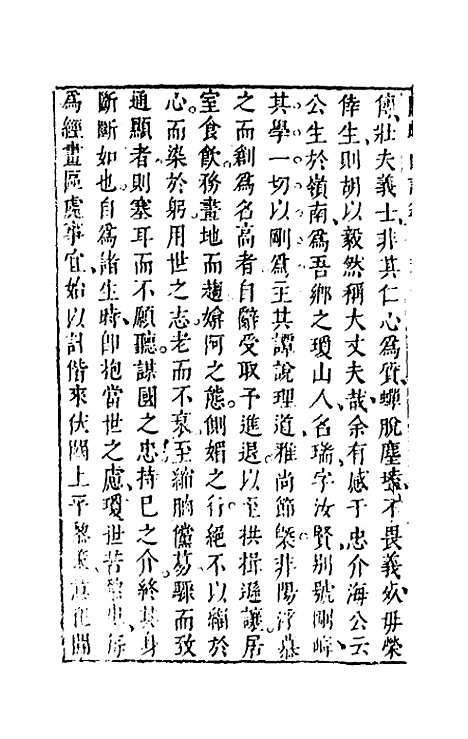 傳壯夫義士非其仁心爲質蟬脫塵壒不畏義死毋榮
倖生則胡以毅然稱大丈夫哉余有感于忠介海公云
公生於嶺南爲吾鄉之瓊山人名瑞字汝賢別號剛峰
其學一切以剛爲主其譚說理道雅尚節槩非陽浮慕
之而創爲名高者自辭受取予進退以至拱揖遜讓居
室食飲務畫地而趨媕阿之態側媚之行絕不以緇於
心而染於躬用世之志老而不衰至緰朒儻蕩驟而致
通顯者則塞耳而不願聽謀國之忠持已之介終其身
斷斷如也自爲諸生時卽抱當世之慮瓊世苦黎患
爲經畫區處事宜始以計偕來伏闕上平黎